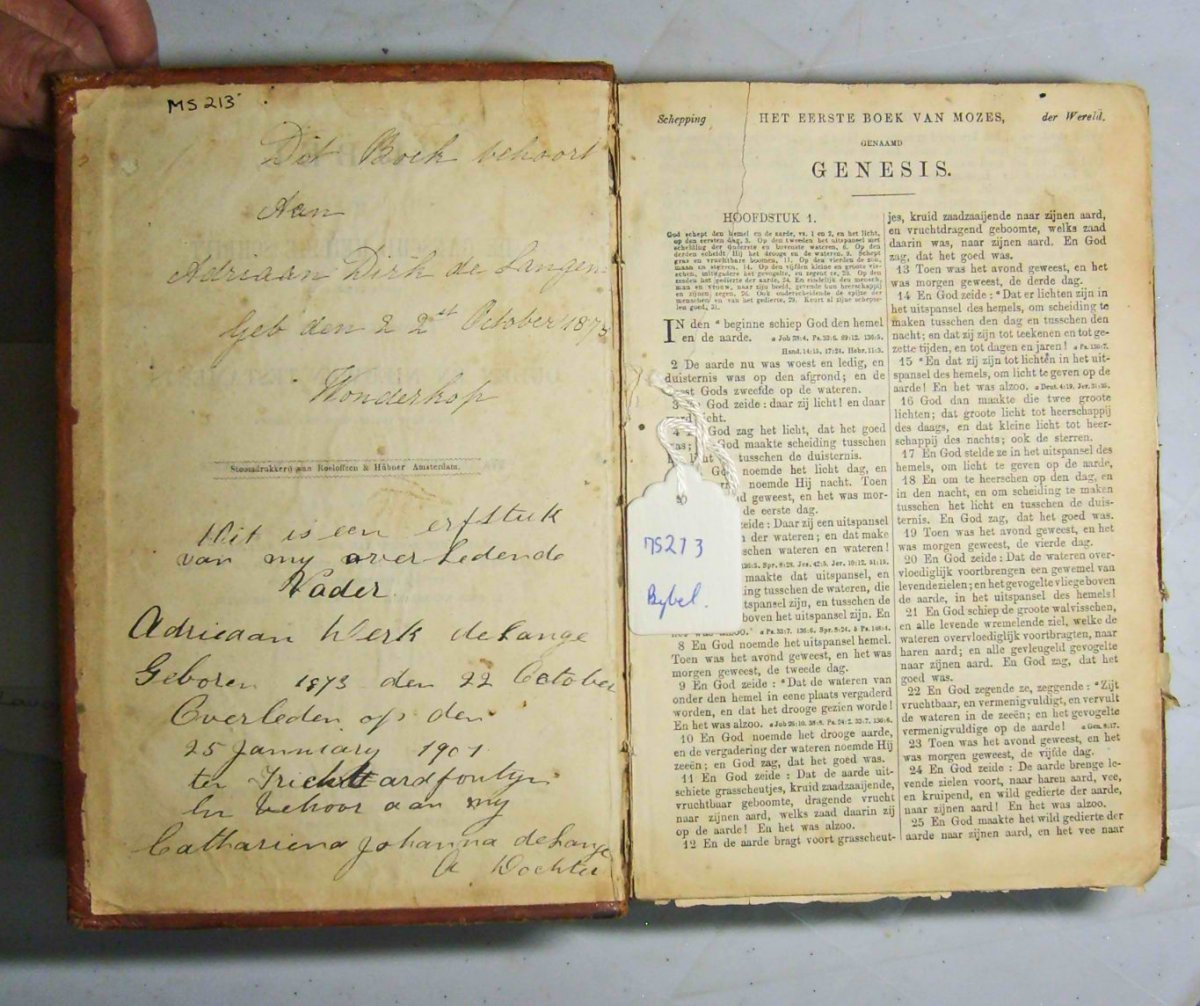 MS 213
Dit Boek behoort
Aan
Adriaan Dirk de Lange
Geb den 22st October 1873
Wonderkop
Stoomdrukkerij van Roeloffzen & Hübner Amsterdam.
Dit is een erfstuk
van my overledende
Vader
Adriaan Derk de Lange
Geboren 1873 den 22 October
Overleden op den
25 January 1901
te Trichardfontyn
En behoor aan my
Cathariena Johanna de Lange
Dochter
Schepping HET EERSTE BOEK VAN MOZES, der Wereld.
GENAAMD
GENESIS.
HOOFDSTUK 1.
God schept den hemel en de aarde, vs. 1 en 2, en het licht,
op den eersten dag, 3. Op den tweeden het uitspansel met
scheiding der onderste en bovenste wateren, 6. Op den
derden scheidt Hij het drooge en de wateren, 9. Schept
gras en vruchtbare boomen, 11. Op den vierden de zon,
maan en sterren, 14. Op den vijfden kleine en groote vis-
schen, mitsgaders het gevogelte, en zegent ze, 20. Op den
zesden het gedierte der aarde, 24. En eindelijk den mensch,
man en vrouw, naar zijn beeld, gevende hun heerschappij
en zijnen zegen, 26. Ook onderscheidende de spijze der
menschen en van het gedierte, 29. Keurt al zijne schepse-
len goed, 31.
IN den a beginne schiep God den hemel
en de aarde. a Job 38:4. Ps. 33:6. 89:12. 136:5.
Hand. 14:15. 17:24. Hebr. 11:3.
2 De aarde nu was woest en ledig, en
duisternis was op den afgrond; en de
Geest Gods zweefde op de wateren.
3 En God zeide: daar zij licht! en daar
werd licht.
4 En God zag het licht, dat het goed
was; God maakte scheiding tusschen
licht tusschen de duisternis.
God noemde het licht dag, en
noemde Hij nacht. Toen
geweest, en het was mor-
de eerste dag.
zeide: Daar zij een uitspansel
der wateren; en dat make
schen wateren en wateren!
136:5. Spr. 8:28. Jes. 42:5. Jer. 10:12. 51:15.
maakte dat uitspansel, en
ing tusschen de wateren, die
tspansel zijn, en tusschen de
boven het uitspansel zijn. En
het was alzoo. a Ps. 33:7. 136:5. Spr. 8:24. b Ps. 148:4.
8 En God noemde het uitspansel hemel.
Toen was het avond geweest, en het was
morgen geweest, de tweede dag.
9 En God zeide: a Dat de wateren van
onder den hemel in eene plaats vergaderd
worden, en dat het drooge gezien worde!
En het was alzoo. a Job 26:10. 38:8. Ps. 24:2. 33:7. 136:6.
10 En God noemde het drooge aarde,
en de vergadering der wateren noemde Hij
zeeën; en God zag, dat het goed was.
11 En God zeide: Dat de aarde uit-
schiete grasscheutjes, kruid zaadzaaijende,
vruchtbaar geboomte, dragende vrucht
naar zijnen aard, welks zaad daarin zij
op de aarde! En het was alzoo.
12 En de aarde bragt voort grasscheut-
MS213
Bybel.
jes, kruid zaadzaaijende naar zijnen aard,
en vruchtdragend geboomte, welks zaad
daarin was, naar zijnen aard. En God
zag, dat het goed was.
13 Toen was het avond geweest, en het
was morgen geweest, de derde dag.
14 En God zeide: a Dat er lichten zijn in
het uitspansel des hemels, om scheiding te
maken tusschen den dag en tusschen den
nacht; en dat zij zijn tot teekenen en tot ge-
zette tijden, en tot dagen en jaren! a Ps. 136:7.
15 a En dat zij zijn tot lichten in het uit-
spansel des hemels, om licht te geven op de
aarde! En het was alzoo. a Deut. 4:19. Jer. 31:35.
16 God dan maakte die twee groote
lichten; dat groote licht tot heerschappij
des daags, en dat kleine licht tot heer-
schappij des nachts; ook de sterren.
17 En God stelde ze in het uitspansel des
hemels, om licht te geven op de aarde,
18 En om te heerschen op den dag, en
in den nacht, en om scheiding te maken
tusschen het licht en tusschen de duis-
ternis. En God zag, dat het goed was.
19 Toen was het avond geweest, en het
was morgen geweest, de vierde dag.
20 En God zeide: Dat de wateren over-
vloediglijk voortbrengen een gewemel van
levende zielen; en het gevogelte vliege boven
de aarde, in het uitspansel des hemels!
21 En God schiep de groote walvisschen,
en alle levende wremelende ziel, welke de
wateren overvloediglijk voortbragten, naar
haren aard; en alle gevleugeld gevogelte
naar zijnen aard. En God zag, dat het
goed was.
22 En God zegende ze, zeggende: a Zijt
vruchtbaar, en vermenigvuldigt, en vervult
de wateren in de zeeën; en het gevogelte
vermenigvuldige op de aarde! a Gen. 8:17.
23 Toen was het avond geweest, en het
was morgen geweest, de vijfde dag.
24 En God zeide: De aarde brenge le-
vende zielen voort, naar haren aard, vee,
en kruipend, en wild gedierte der aarde,
naar zijnen aard! En het was alzoo.
25 En God maakte het wild gedierte der
aarde naar zijnen aard, en het vee naar